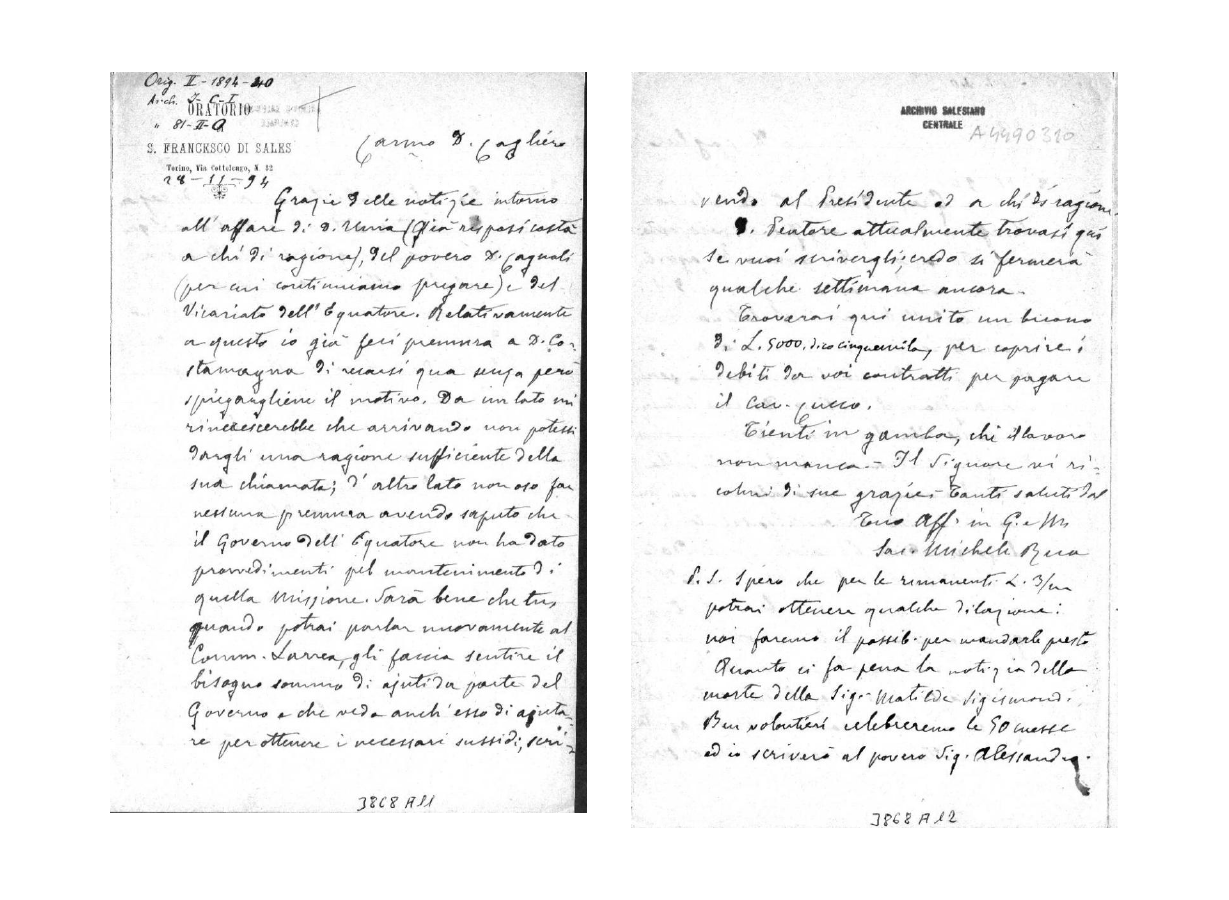 Orig. II - 1894 - 40
Arch. I - C - I
ORATORIO
" 81 - II - Q
S. FRANCESCO DI SALES
Torino, Via Cottolengo, N. 32
28 - 11 - 94
Carmo D. Cagliero
Grazie delle notizie intorno
all'affare di D. Unia (già risposi costà
a chi di ragione), del povero D. Cagnoli
(per cui continuiamo pregare) e del
Vicariato dell'Equatore. Relativamente
a questo io già feci premura a D. Co-
stamagna di recarsi qua senza però
spiegargliene il motivo. Da un lato mi
rincrescerebbe che arrivando non potessi
dargli una ragione sufficiente della
sua chiamata; d'altro lato non oso far
nessuna premura avendo saputo che
il Governo dell'Equatore non ha dato
provvedimenti pel mantenimento di
quella Missione. Sarà bene che tu,
quando potrai parlar nuovamente al
Comm. Larrea, gli faccia sentire il
bisogno sommo di ajuti da parte del
Governo e che veda anch'esso di ajuta-
re per ottenere i necessari sussidi, scri-
3868 A 11
ARCHIVIO SALESIANO
CENTRALE
A4490310
vendo al Presidente ed a chi di ragione.
D. Pentore attualmente trovasi qui
se vuoi scrivergli; credo si fermerà
qualche settimana ancora.
Troverai qui unito un buono
di L. 5000, dico cinquemila, per coprire i
debiti da voi contratti per pagare
il Cav. Cucco.
Tienti in gamba, chè il lavoro
non manca - Il Signore vi ri-
colmi di sue grazie. Tanti saluti dal
Tuo Aff. in G. e M.
Sac. Michele Rua
P. S. Spero che per le rimanenti L. 3/m
potrai ottenere qualche dilazione:
noi faremo il possib. per mandarle presto
Quanto ci fa pena la notizia della
morte della Sig. Matilde Sigismondi.
Ben volontieri celebreremo le 50 messe
ed io scriverò al povero Sig. Alessandro.
3868 A 12